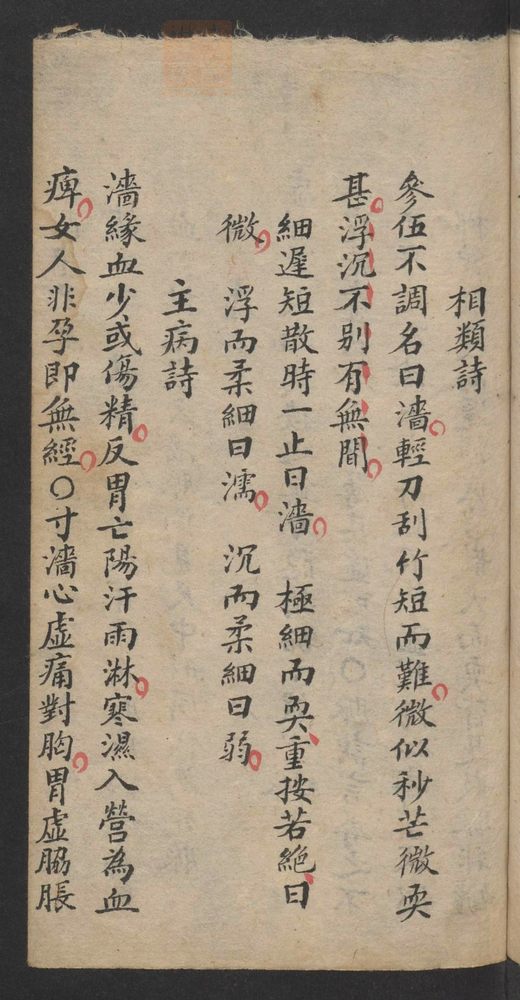 相類詩
參伍不調名曰濇輕刀刮竹短而難微似秒芒微耎
甚浮沉不别有無間
細遲短散時一止曰濇 極細而耎重按若絶曰
微 浮而柔細曰濡 沉而柔細曰弱
主病詩
濇緣血少或傷精反胃亡陽汗雨淋寒濕入營為血
痺女人非孕即無經〇寸濇心虛痛對胸胃虛脇脹